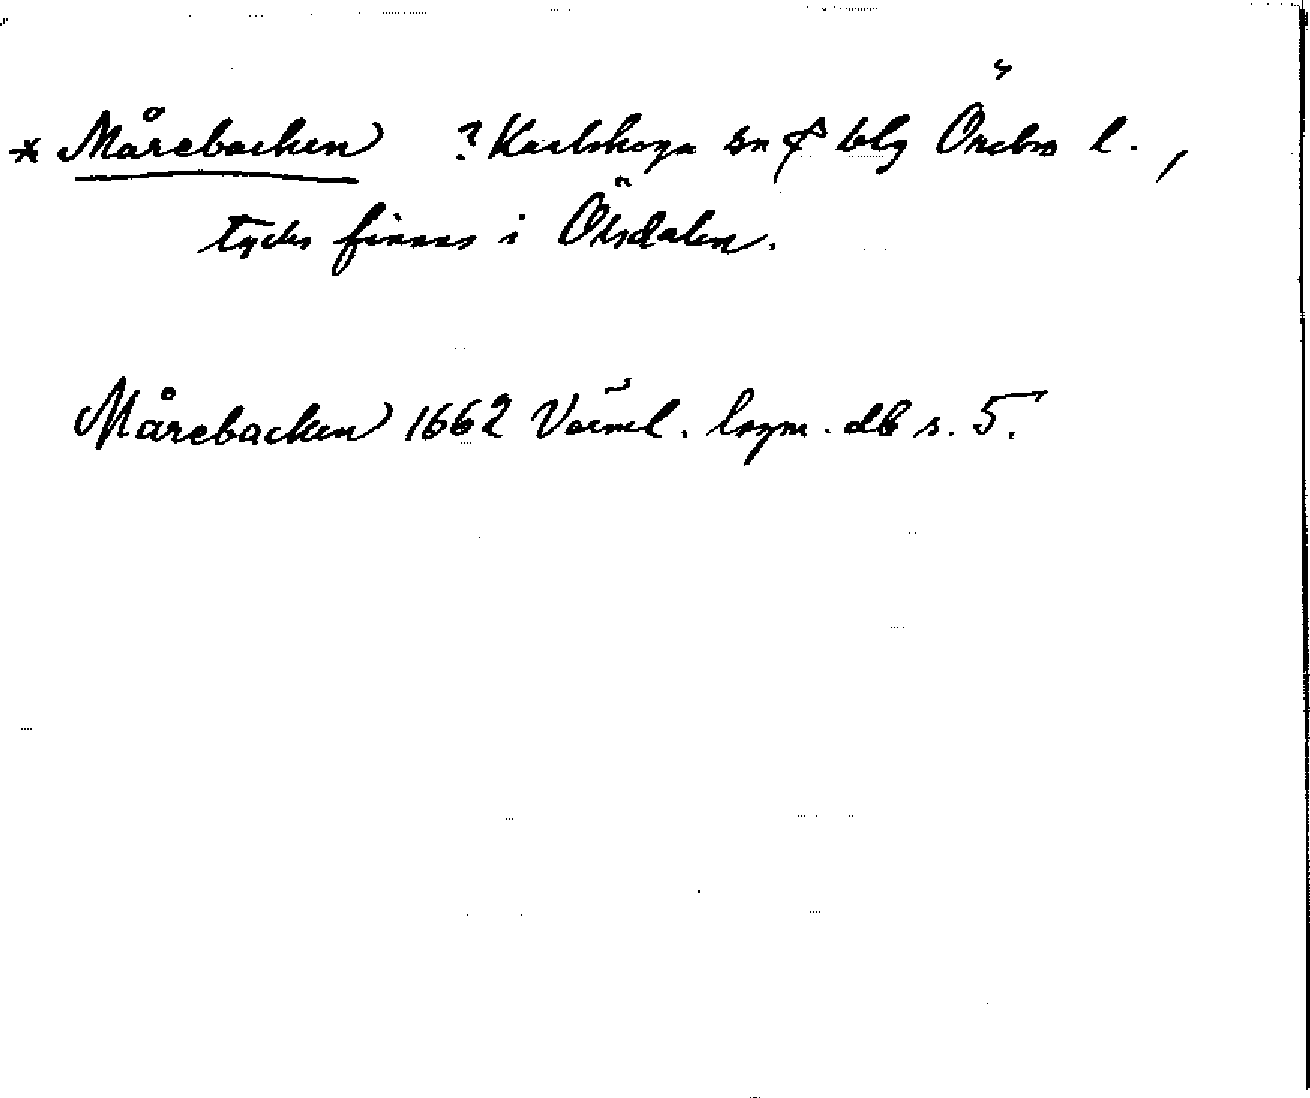 * Mårebacken ? Karlskoga sn & blg Örebro l.,
tycks finnas i Ölsdalen.
Mårebacken 1662 Värml. lagm. db s. 5.